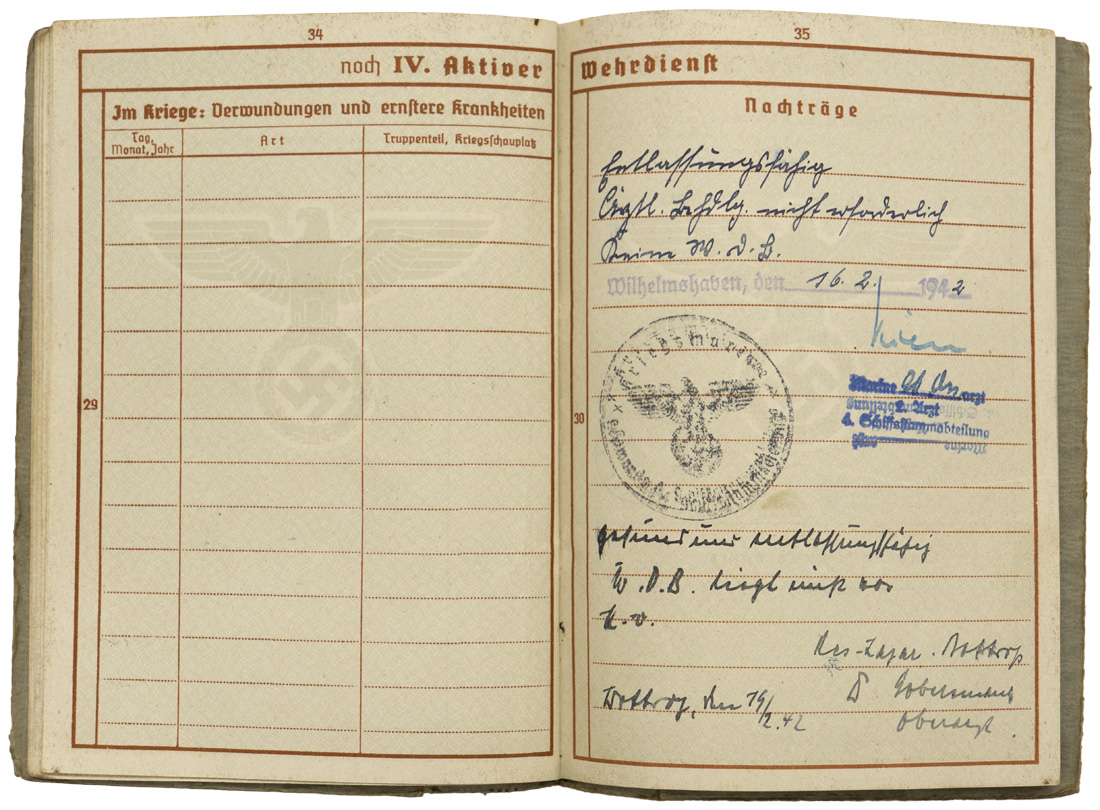 34
noch IV. Aktiver
Im Kriege: Verwundungen und ernstere Krankheiten
Tag, Monat, Jahr
Art
Truppenteil, Kriegsschauplatz
29
35
Wehrdienst
Nachträge
Entlassungsfähig
Ärztl. Behdlg. nicht erforderlich
Keine W.d.B.
Wilhelmshaven, den 16.2. 1942
Kriegsmarine
Marine arzt
4. Schiffsstammabteilung
30
gesund und entlassungsfähig
W.D.B. liegt nicht vor
k.v.
Res-Lazar. Bottrop
Bottrop, den 19/2.42
Dr.
Oberarzt.